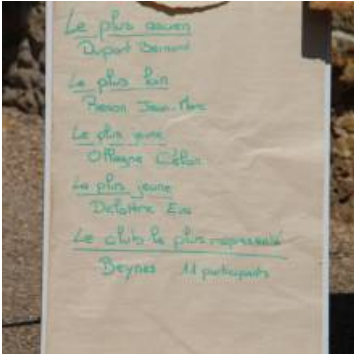 Le plus ancien
Dupont Bernard
Le plus loin
Jean-Marc
Le plus jeune
Le plus jeune
Delattre Eva
Le club le plus représenté
Beynes 11 participants